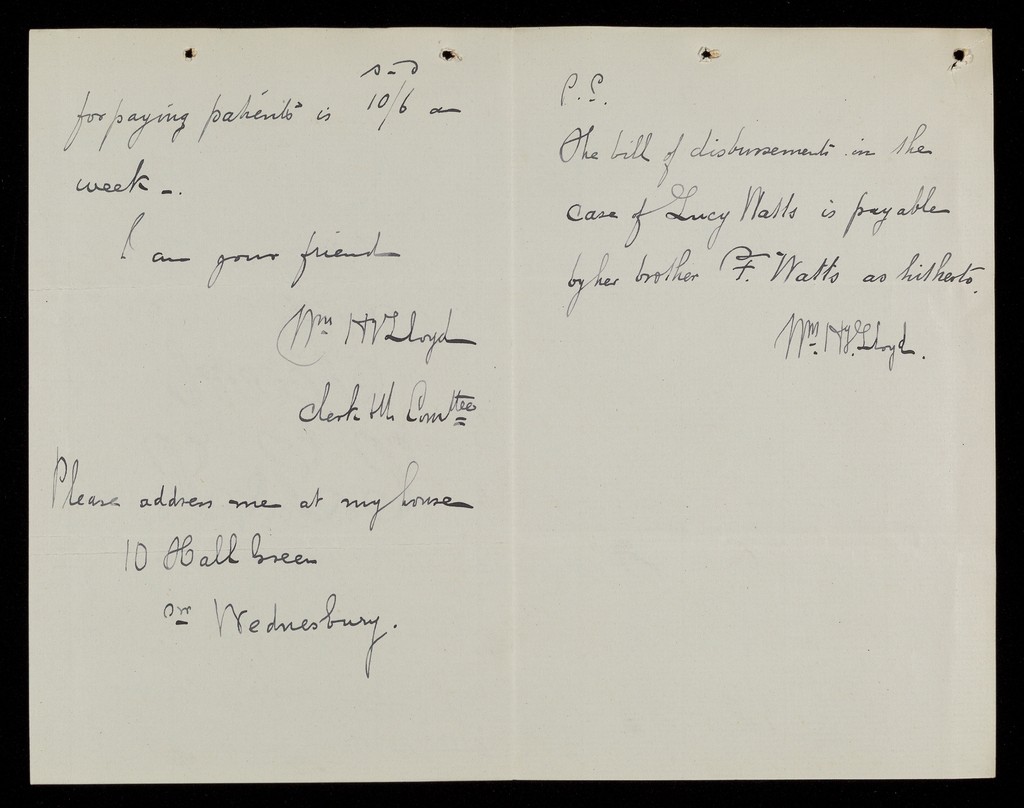 s - d
for paying patients is 10/6 a
week -.
I am your friend
Wm H Lloyd
Clerk Comttee
Please address me at my house
10 Hall Green
nr Wednesbury.
P.S.
The bill of disbursements in the
case of Lucy Watts is payable
by her brother F. Watts as hitherto.
Wm. H. Lloyd.